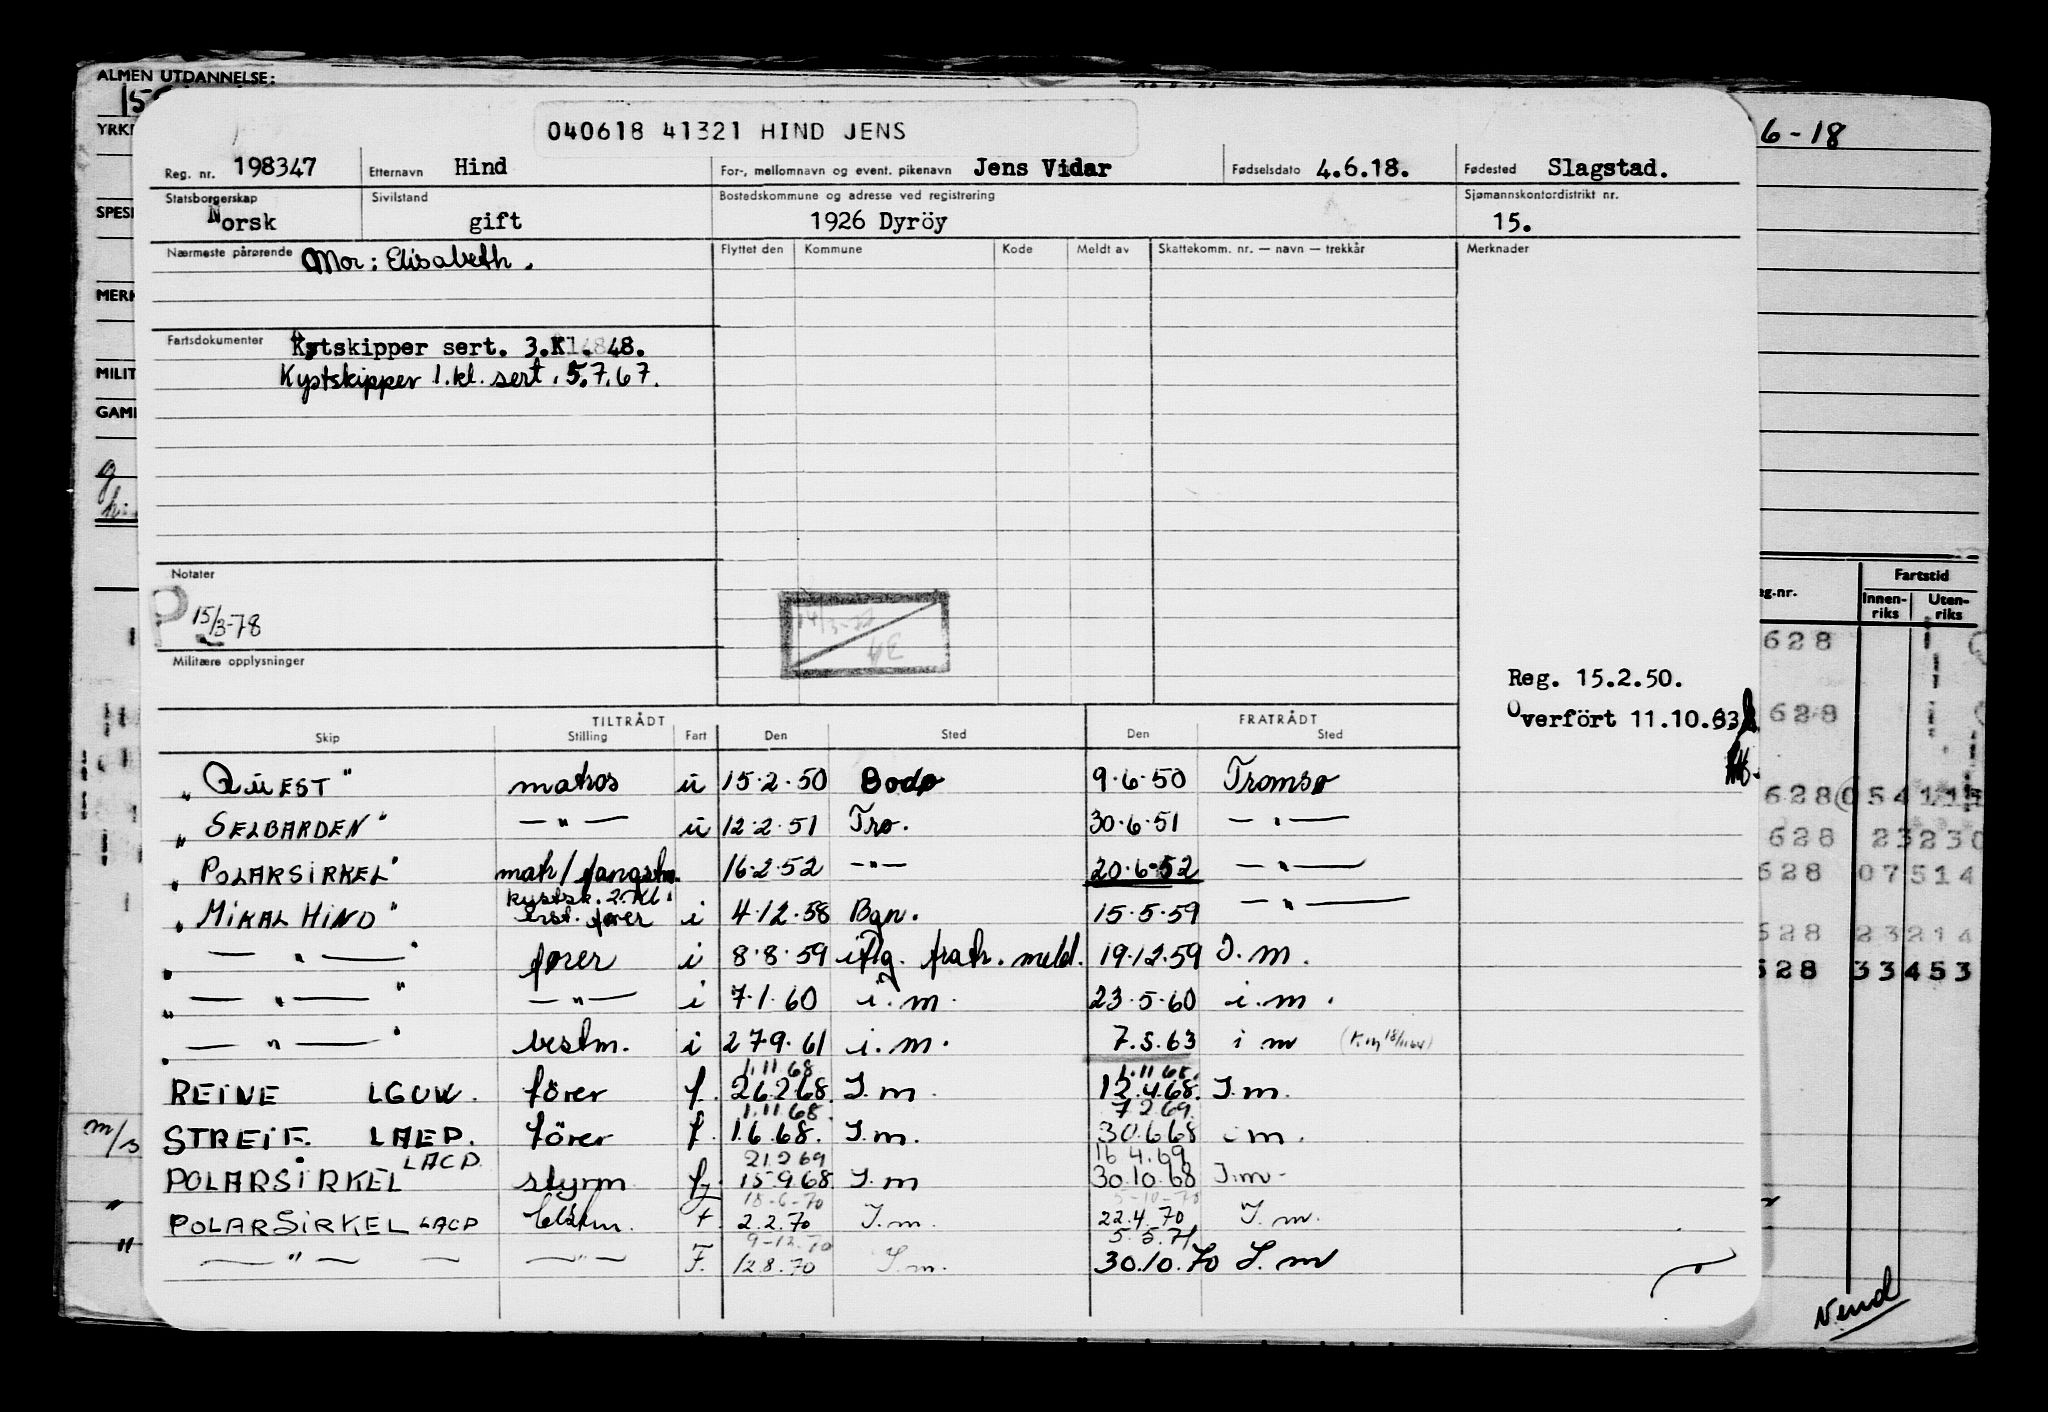 ALMEN UTDANNELSE:
040618 41321 HIND JENS
6-18
Reg. nr. 198347 Etternavn Hind For-, mellomnavn og event. pikenavn Jens Vidar Fødselsdato 4.6.18. Fødested Slagstad.
Statsborgerskap Norsk Sivilstand gift Bostedskommune og adresse ved registrering 1926 Dyröy Sjømannskontordistrikt nr. 15.
Nærmeste pårørende Mor: Elisabeth. Flyttet den Kommune Kode Meldt av Skattekomm. nr. — navn — trekkår Merknader
Fartsdokumenter Kystskipper sert. 3.Kl. 48.
Kystskipper 1.kl. sert. 5.7.67.
Fartstid
Innen-riks Uten-riks
Notater
P 15/3-78
Militære opplysninger
Reg. 15.2.50.
Overfört 11.10.63
TILTRÅDT FRATRÅDT
Skip Stilling Fart Den Sted Den Sted
"QUEST" matros u 15.2.50 Bodø 9.6.50 Tromsø
"SELBARDEN" — " — u 12.2.51 Tro. 30.6.51 — " —
"POLARSIRKEL" matr/fangstm. 16.2.52 — " — 20.6.52 — " —
kystsk. 2.kl.
"MIKAL HIND" fører i 4.12.58 Bgn. 15.5.59 — " —
" — " — " fører i 8.8.59 iflg. fratr. meld. 19.12.59 I.m.
" — " — " — " — i 7.1.60 i.m. 23.5.60 i.m.
" — " — " bestm. i 27.9.61 i.m. 7.5.63 i m
1.11.68 1.11.68.
REINE LGUW. förer f. 26.2.68. I.m. 12.4.68. I.m.
1.11.68. 7.2.69.
m/s STREIF. LAEP. förer f. 1.6.68. I.m. 30.6.68 i m.
LACP 21.2.69 16.4.69
POLARSIRKEL styrm f. 15.9.68. I.m 30.10.68 I.m.
18-6-70 5-10-70
" POLARSIRKEL LACP bestm. f. 2.2.70 I.m. 22.4.70 I.m.
9-12.70 5.5.71
" — " — — " — F. 12.8.70 I.m. 30.10.70 I.m
628
628
628 05411
628 23230
628 07514
628 23214
628 33453
Vend